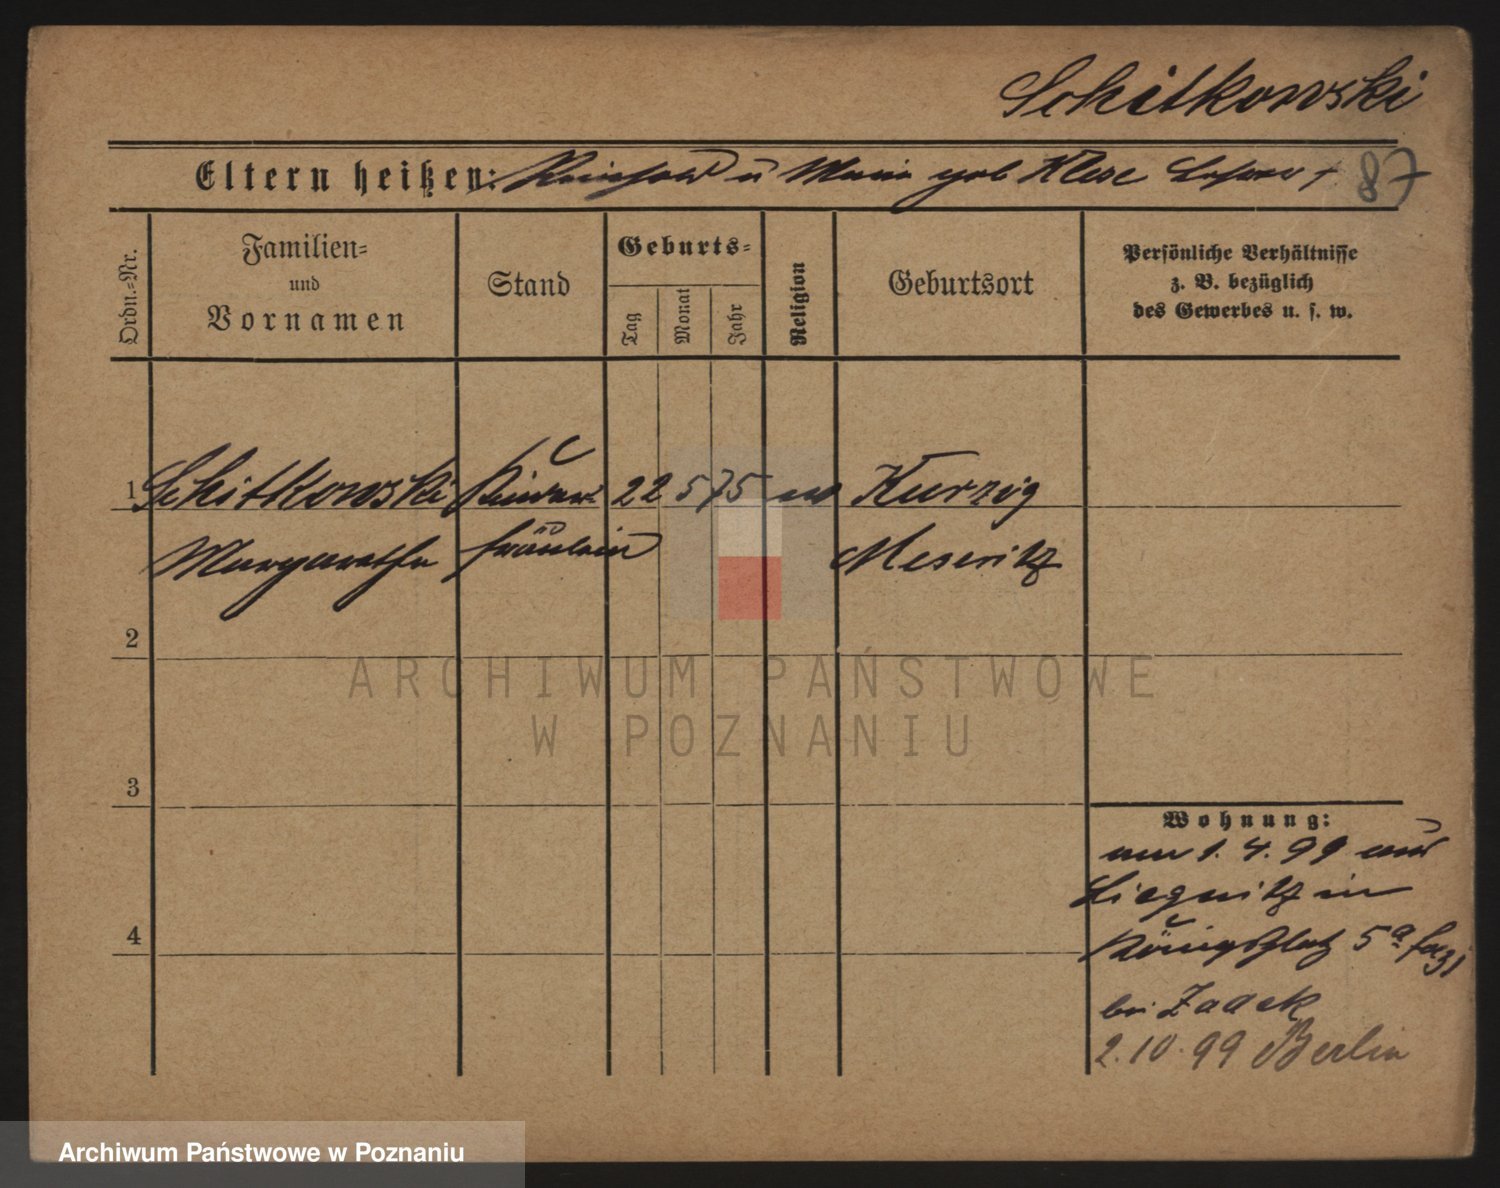 Schitkowski
Eltern heißen: Reinhold u Marie geb Klese Lehrer +
87
Ordn.-Nr.
Familien-
und
Vornamen
Stand
Geburts-
Tag
Monat
Jahr
Religion
Geburtsort
Persönliche Verhältnisse
z. B. bezüglich
des Gewerbes u. s. w.
1 Schitkowski Kinder- 22 5 75 Kurzig
Margarethe fräulein Meseritz
2
ARCHIWUM PAŃSTWOWE
W POZNANIU
3
Wohnung:
am 1. 4. 99 aus
Liegnitz in
4
Königsplatz 5a
bei Zadek
2.10.99 Berlin
Archiwum Państwowe w Poznaniu